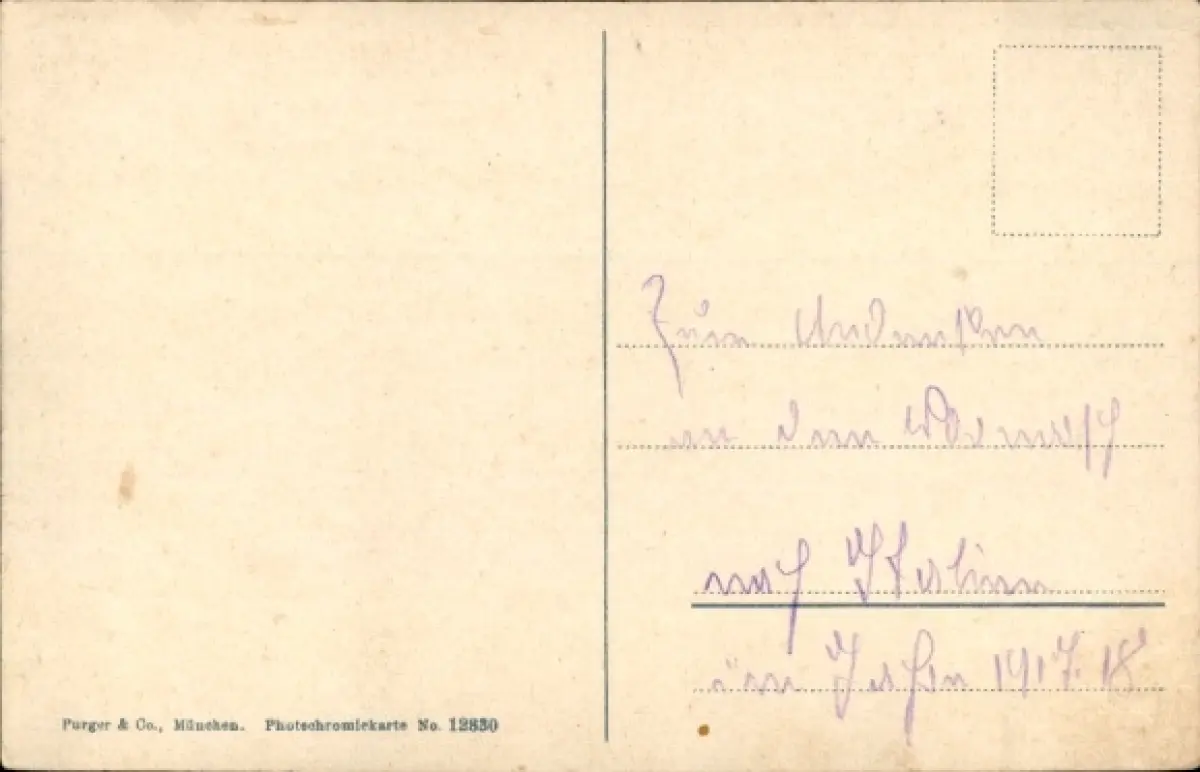 Zum Andenken
an den Vormarsch
nach Italien
im Jahre 1917.18
Purger & Co., München. Photochromiekarte No. 12830